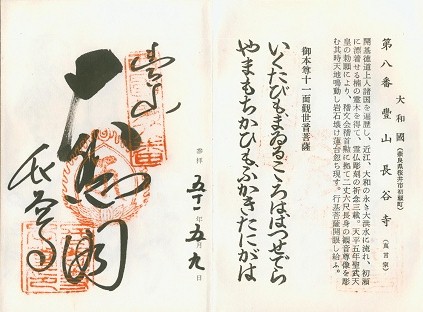 大和國
(奈良県桜井市初瀬町)
第八番 豊山 長谷寺 (真言宗)
開基徳道上人諸国を遍歴し、近江、大和の永き大洪水に流れ、初瀬
に漂着せる楠の霊木を得て、霊仏彫刻の祈念三載。天平五年聖武天
皇の勅願により、稽文会稽首勲に拠て二丈六尺長身の観音尊像を彫
む其時天地鳴動し岩石砕け蓮台忽ち現す。行基菩薩開眼し給ふ。
御本尊十一面観世音菩薩
いくたびもまゐるこころははつせでら
やまもちかひもふかきたにがは
参拝 五十一年五月九日
豊山
大悲閣
長谷寺